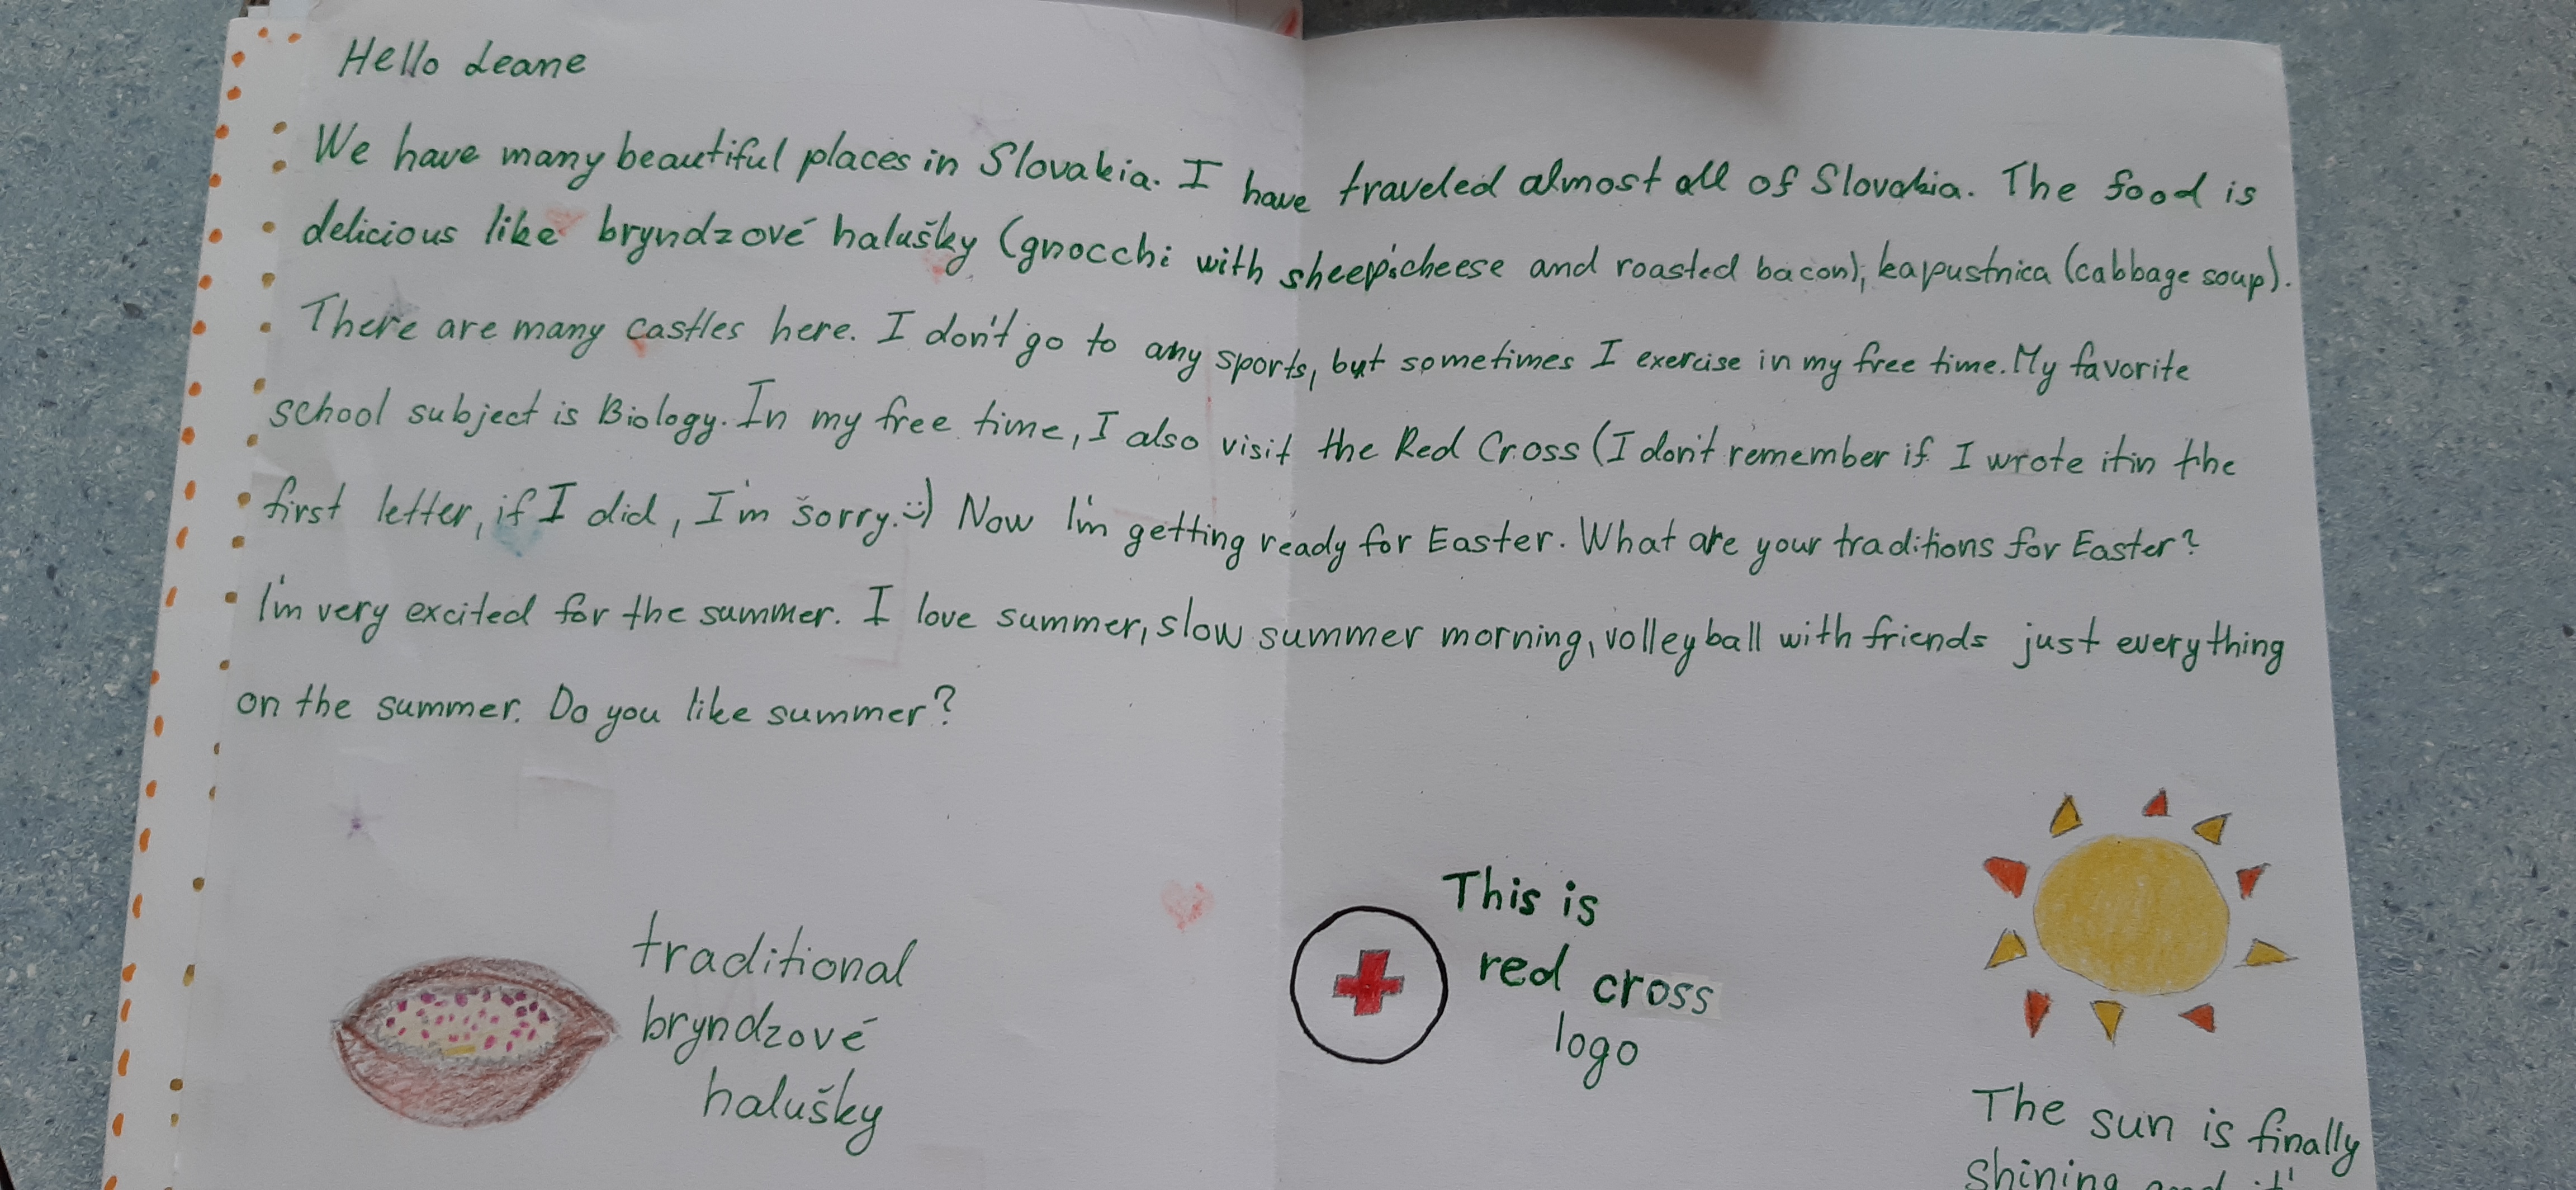 Hello Leane
We have many beautiful places in Slovakia. I have traveled almost all of Slovakia. The food is
delicious like bryndzové halušky (gnocchi with sheep's cheese and roasted bacon), kapustnica (cabbage soup).
There are many castles here. I don't go to any sports, but sometimes I exercise in my free time. My favorite
school subject is Biology. In my free time, I also visit the Red Cross (I don't remember if I wrote it in the
first letter, if I did, I'm sorry. :)) Now I'm getting ready for Easter. What are your traditions for Easter?
I'm very excited for the summer. I love summer, slow summer morning, volleyball with friends just everything
on the summer. Do you like summer?
traditional
bryndzové
halušky
This is
red cross
logo
The sun is finally
shining and